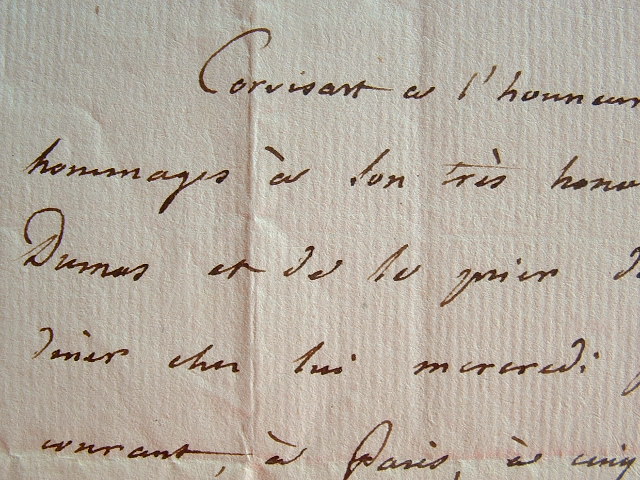 Corvisart a l'honneur
hommages à son très hono
Dumas et de le prier d
diner chez lui mercredi
courant, à Paris, à cinq